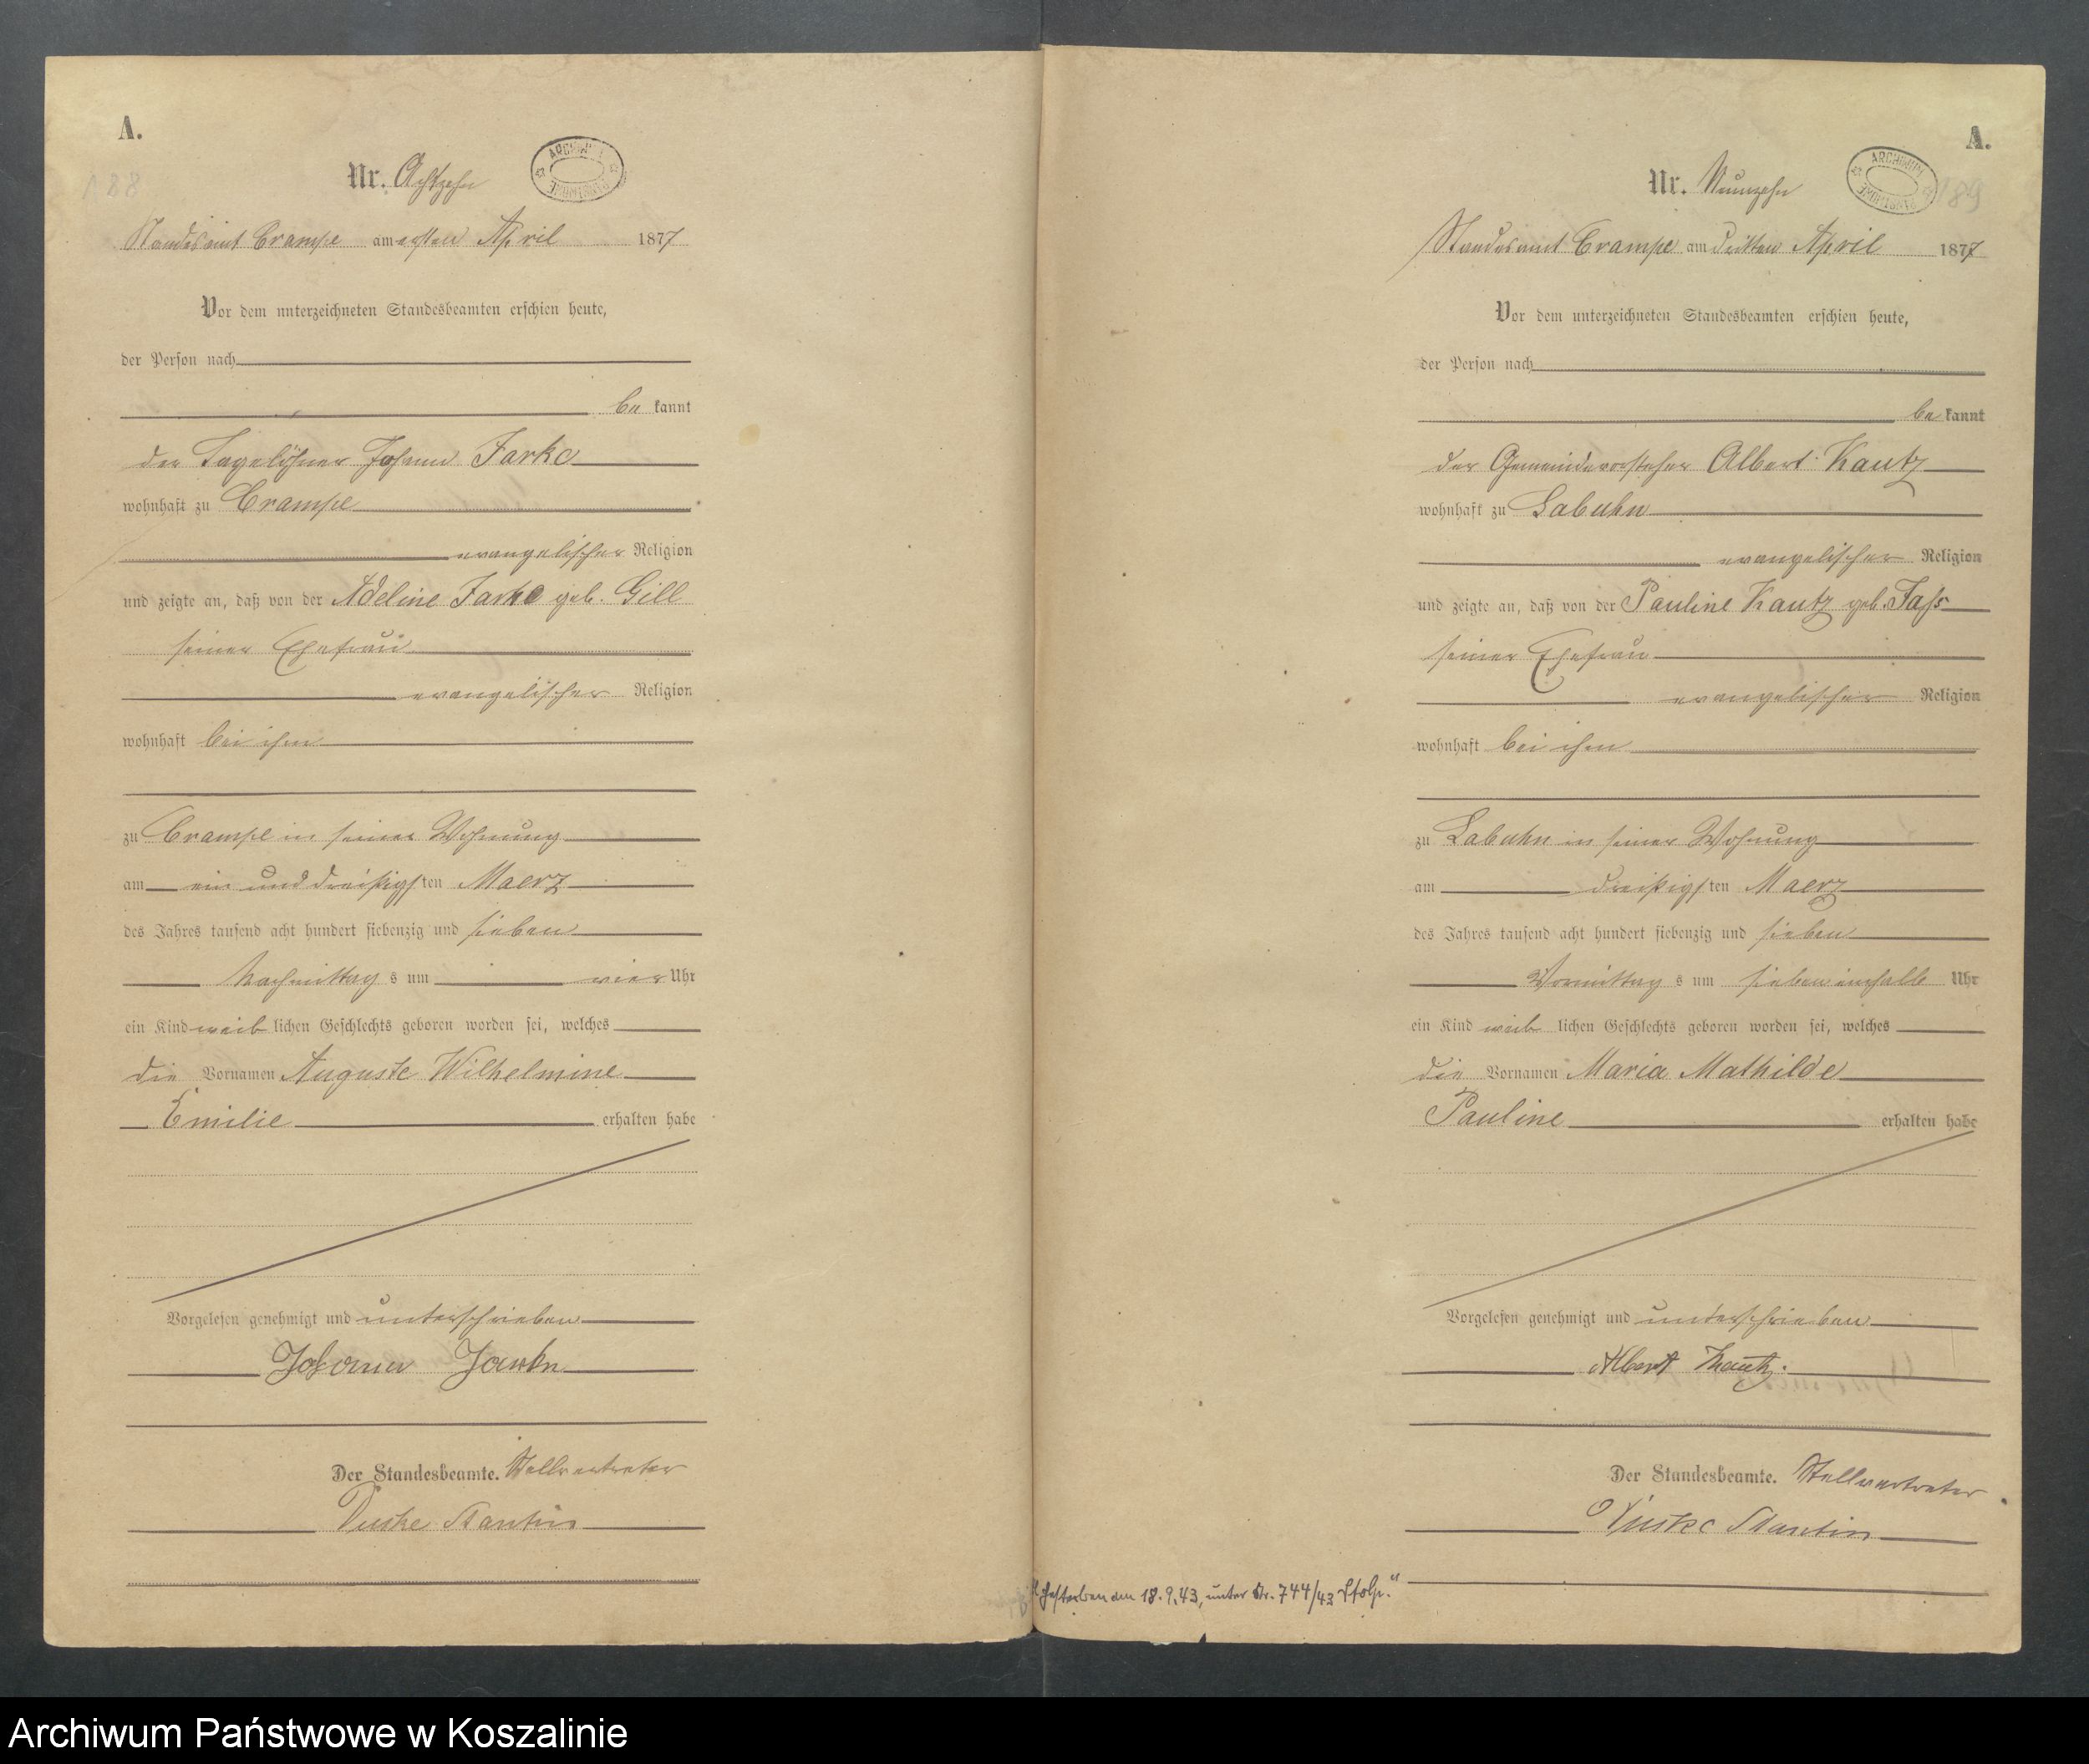 A.
188
Nr. Achtzehn
ARCHIWUM PAŃSTWOWE
Standesamt Crampe am ersten April 1877
Vor dem unterzeichneten Standesbeamten erschien heute,
der Person nach
be kannt
der Tagelöhner Johann Jarke
wohnhaft zu Crampe
evangelischer Religion
und zeigte an, daß von der Adeline Jarke geb. Gill
seiner Ehefrau
evangelischer Religion
wohnhaft bei ihm
zu Crampe in seiner Wohnung
am ein und dreißigsten Maerz
des Jahres tausend acht hundert siebenzig und sieben
Nachmittag s um vier Uhr
ein Kind weib lichen Geschlechts geboren worden sei, welches
die Vornamen Auguste Wilhelmine
Emilie erhalten habe
Vorgelesen genehmigt und unterschrieben
Johann Jarke
Der Standesbeamte. Stellvertreter
A.
Nr. Neunzehn
ARCHIWUM PAŃSTWOWE
189
Standesamt Crampe am dritten April 1877
Vor dem unterzeichneten Standesbeamten erschien heute,
der Person nach
be kannt
der Gemeindevorsteher Albert Kautz
wohnhaft zu Labuhn
evangelischer Religion
und zeigte an, daß von der Pauline Kautz geb. Fass
seiner Ehefrau
evangelischer Religion
wohnhaft bei ihm
zu Labuhn in seiner Wohnung
am dreißigsten Maerz
des Jahres tausend acht hundert siebenzig und sieben
Vormittag s um sieben einhalb Uhr
ein Kind weib lichen Geschlechts geboren worden sei, welches
die Vornamen Maria Mathilde
Pauline erhalten habe
Vorgelesen genehmigt und unterschrieben
Albert Kautz.
Der Standesbeamte. Stellvertreter
Gestorben am 18.9.43, unter Nr. 744/43 Stolp."
Archiwum Państwowe w Koszalinie